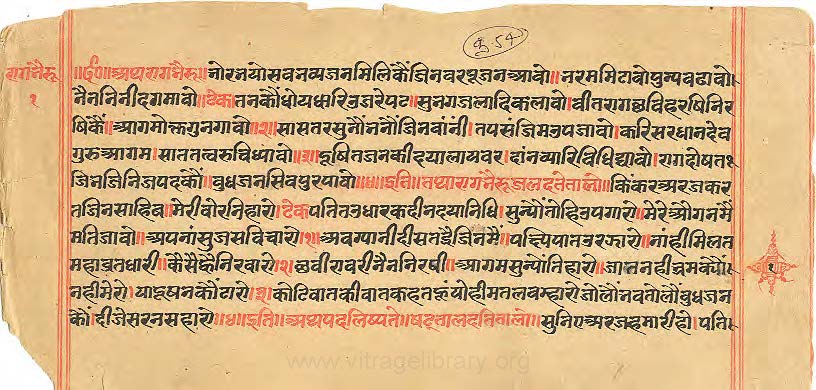 पृ.54
रागभैरू
१
॥६०॥अथरागभैरू॥भोरभयोसबभव्यजनमिलिकैंजिनवरपूजनआवो॥भरममिटावोपुन्यबढावो।
नैननिनीदगमावो॥टेक॥तनकौंधोयधारिउजरेपट॥सुभगजलादिकलावो॥वीतरागछविहरषिनिर
षिकैं॥आगमोक्तगुनगावो॥१॥सासतरसुनौंभनौंजिनवांनी।तपसंजिमउपजावो।करिसरधानदेव
गुरुआगम।साततत्वरुचिष्यावो॥२॥दूषितजनकीदयाल्यायवर।दांनच्यारिविधिद्यावो।रागदोषत
जिभजिनिजपदकौं॥बुधजनसिवपुरपावो॥४॥इति॥तथारागभैरूजलदतेतालो॥किंकरअरजकर
तजिनसाहिब॥मेरीवोरनिहारो॥टेक॥पतितउधारकदीनदयानिधि॥सुन्योंतोहिउपगारो॥मेरेऔगनमैं
मतिजावो॥अपनांसुजसविचारो॥१॥अबग्यानीदीसतहैजिनमैं॥पछिपातउरझारो॥नांहीमिलत
महाव्रतधारी॥कैसैह्वैनिरवारो॥२॥छवीरावरीनैननिरषी॥आगमसुन्योंतिहारो॥जातनहीभ्रमक्यों।
नहीमेरो।यादूषनकौंटारो॥३॥कोटिवातकीवातकहतहूंयोहीमतलवम्हारो।जोलौंभवतोलौंबुधजन
कौं।दीजेसरनसहारो॥४॥इति॥अथपदलिष्यते॥षटतालदतितालो॥सुनिएअरजहमारीहो।पति।
१
www.vitragelibrary.org